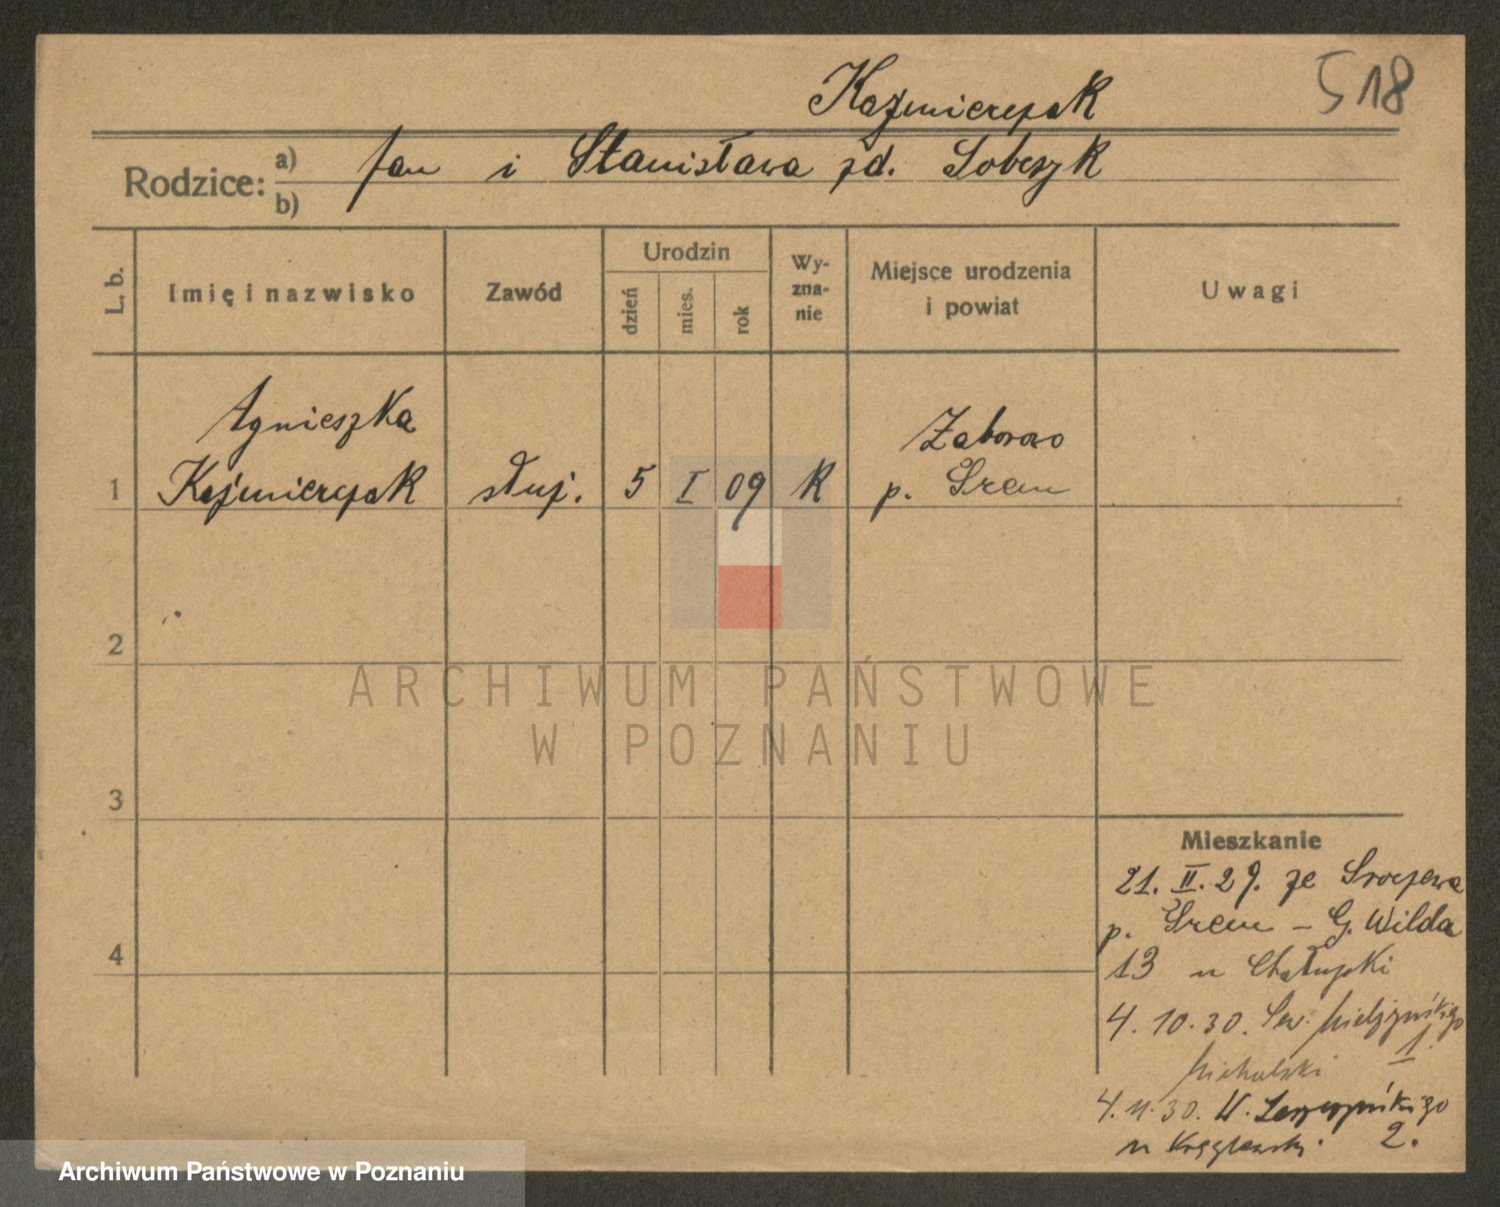 518
Kaźmierczak
Rodzice: a) Jan i Stanisława zd. Sobczyk
b)
L. b.
Imię i nazwisko
Zawód
Urodzin
dzień
mies.
rok
Wy-
zna-
nie
Miejsce urodzenia
i powiat
Uwagi
Agnieszka
Zaborowo
1 Kaźmierczak służ. 5 I 09 K p. Śrem
2
ARCHIWUM PAŃSTWOWE
W POZNANIU
3
Mieszkanie
21. II. 29. ze Sroczewa
p. Śrem – G. Wilda
4
13 u Chałupki
4. 10. 30. Sew. Mielżyńskiego
1.
Michalski
4. 11. 30. W.
u 2.
Archiwum Państwowe w Poznaniu